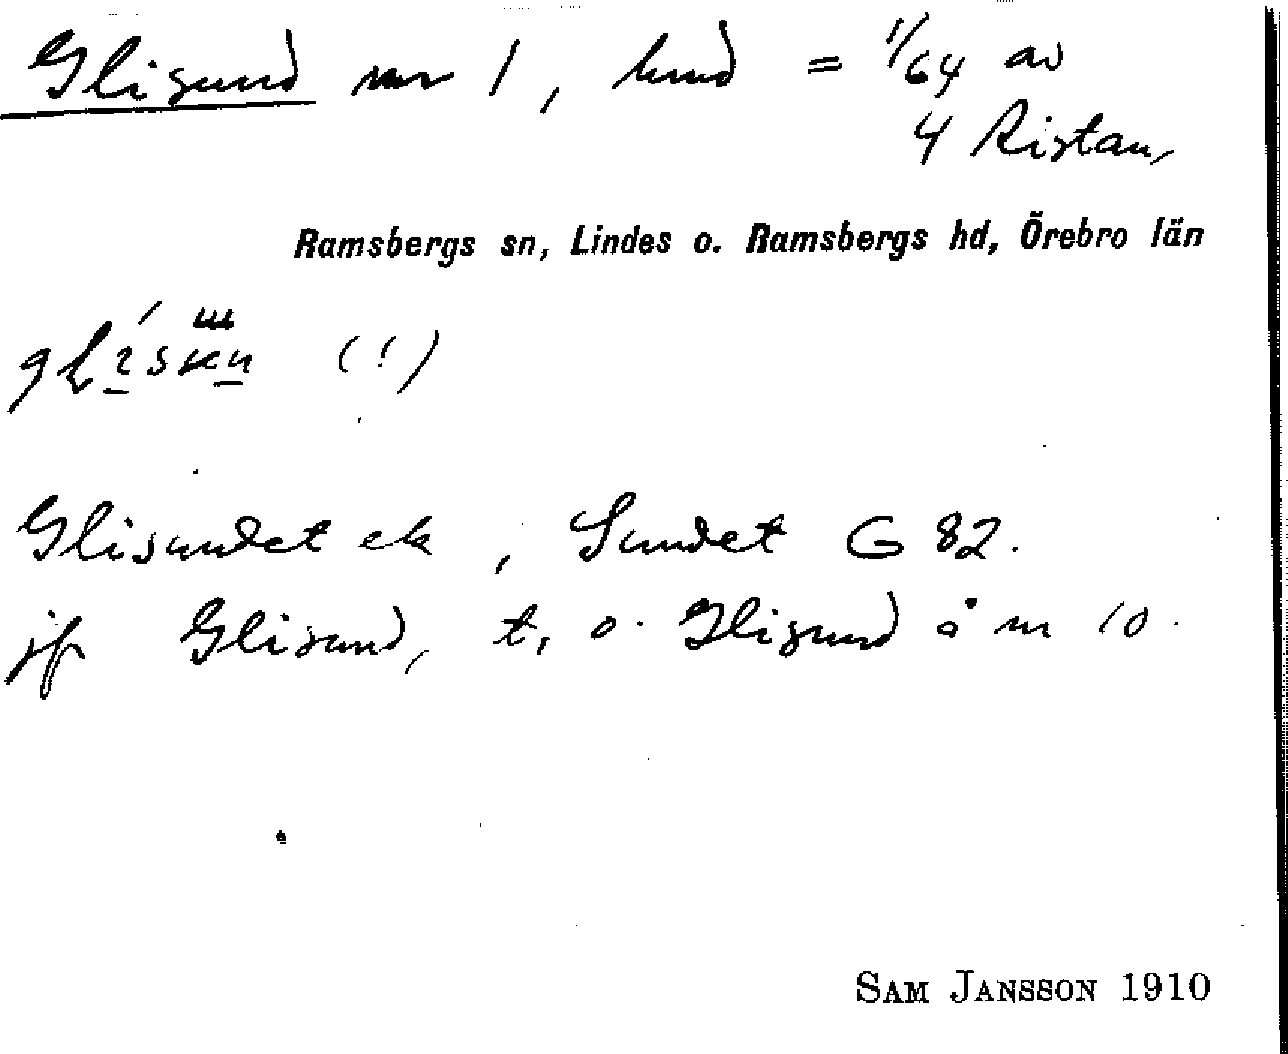 Glisund nr 1, hmd = 1/64 av
4 Ristan,
Ramsbergs sn, Lindes o. Ramsbergs hd, Örebro län
(!)
Glisundet ek, Sundet G 82.
jfr Glisund, t, o. Glisund å nr 10.
SAM JANSSON 1910